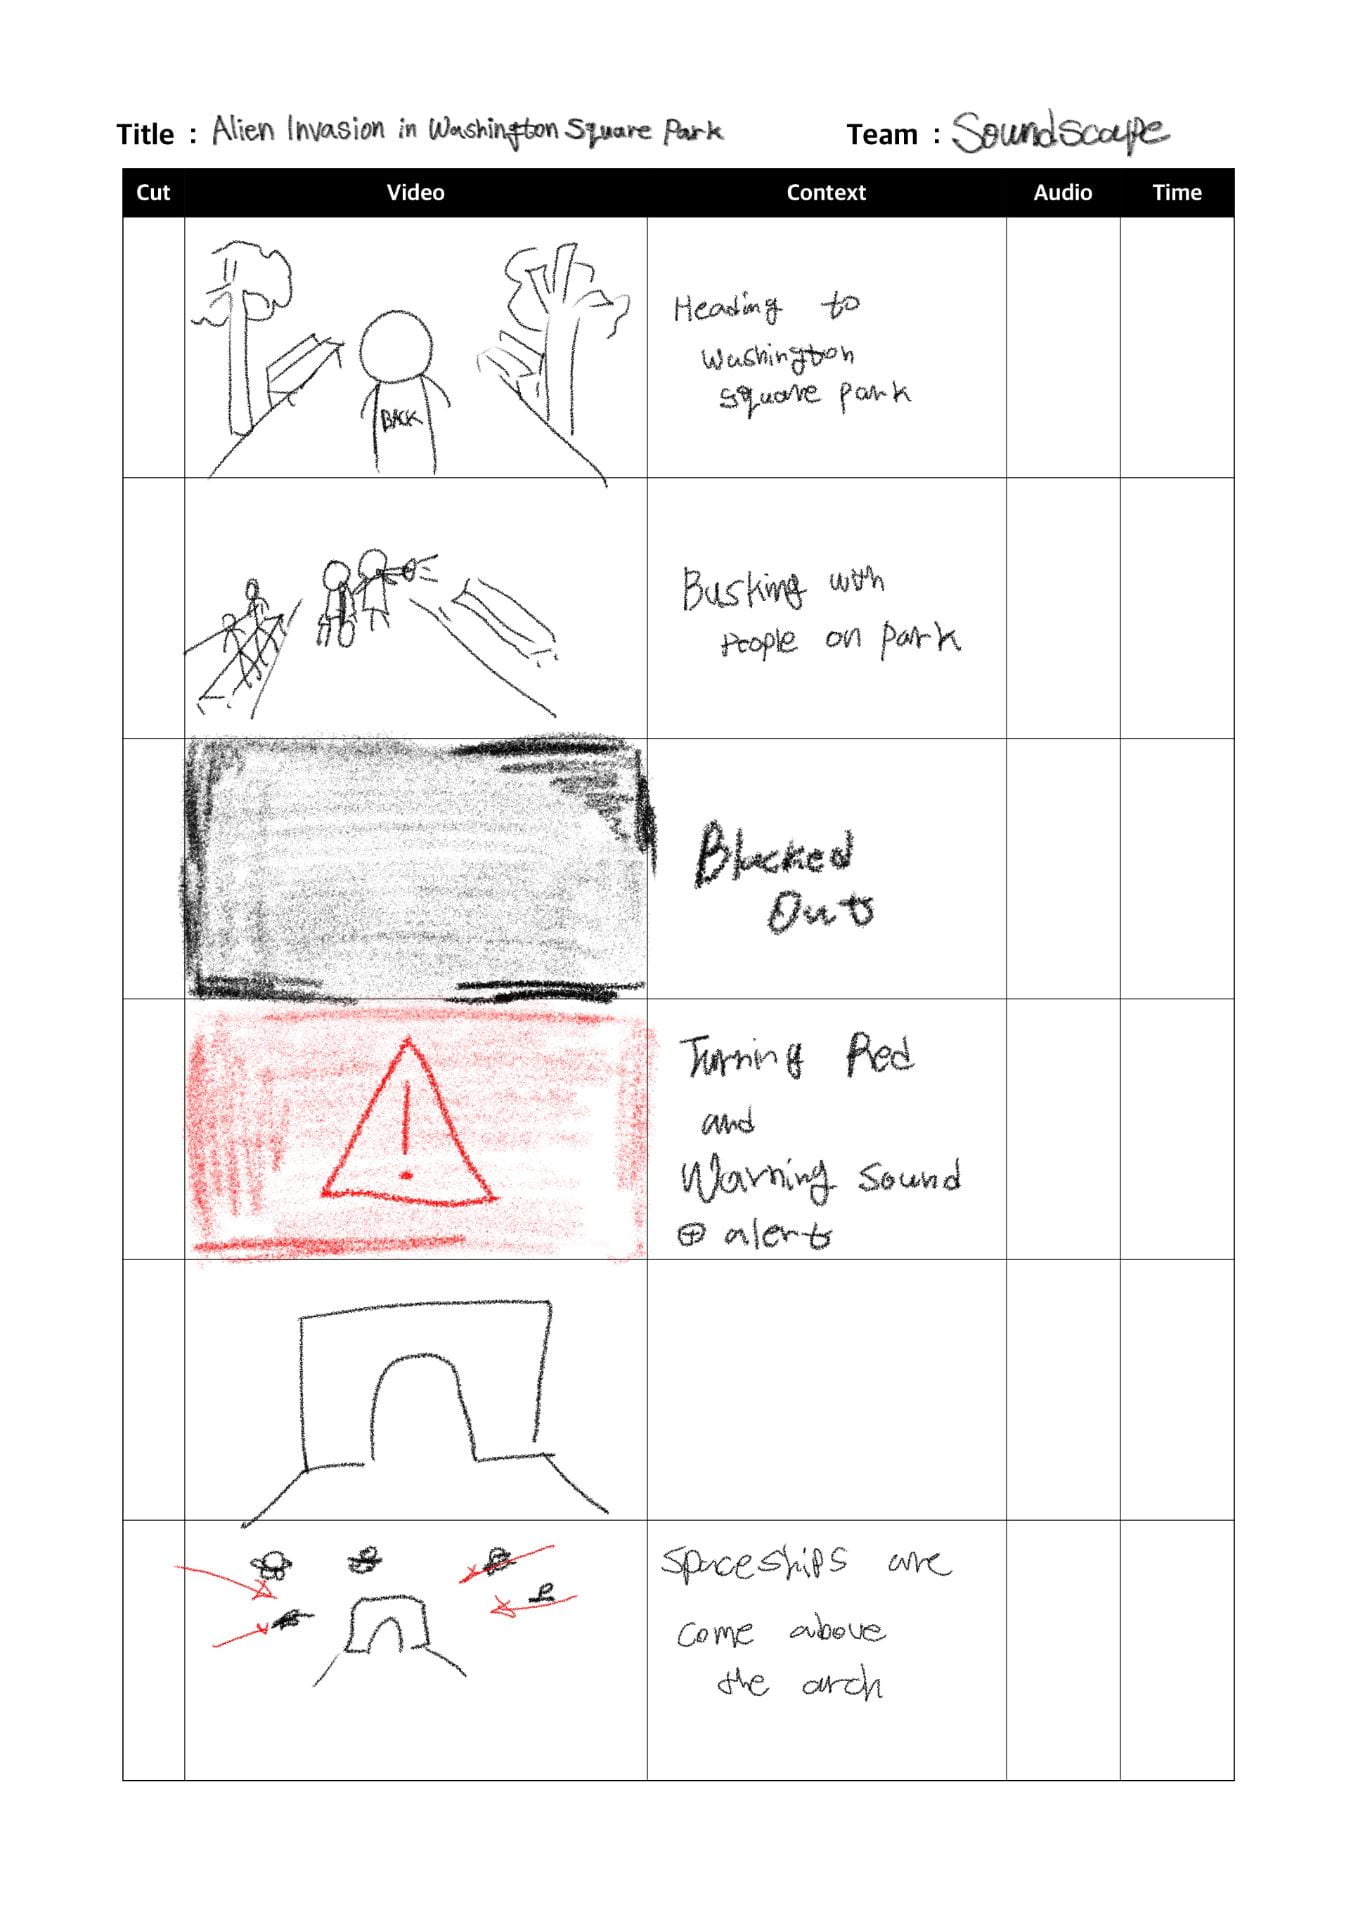 Title : Alien Invasion in Washington Square Park
Team : Soundscape
Cut Video Context Audio Time
BACK
Heading to
Washington
square park
Busking with
People on park
Blacked
Out
Turning Red
and
Warning sound
⊕ alert
!
Spaceships are
come above
the arch